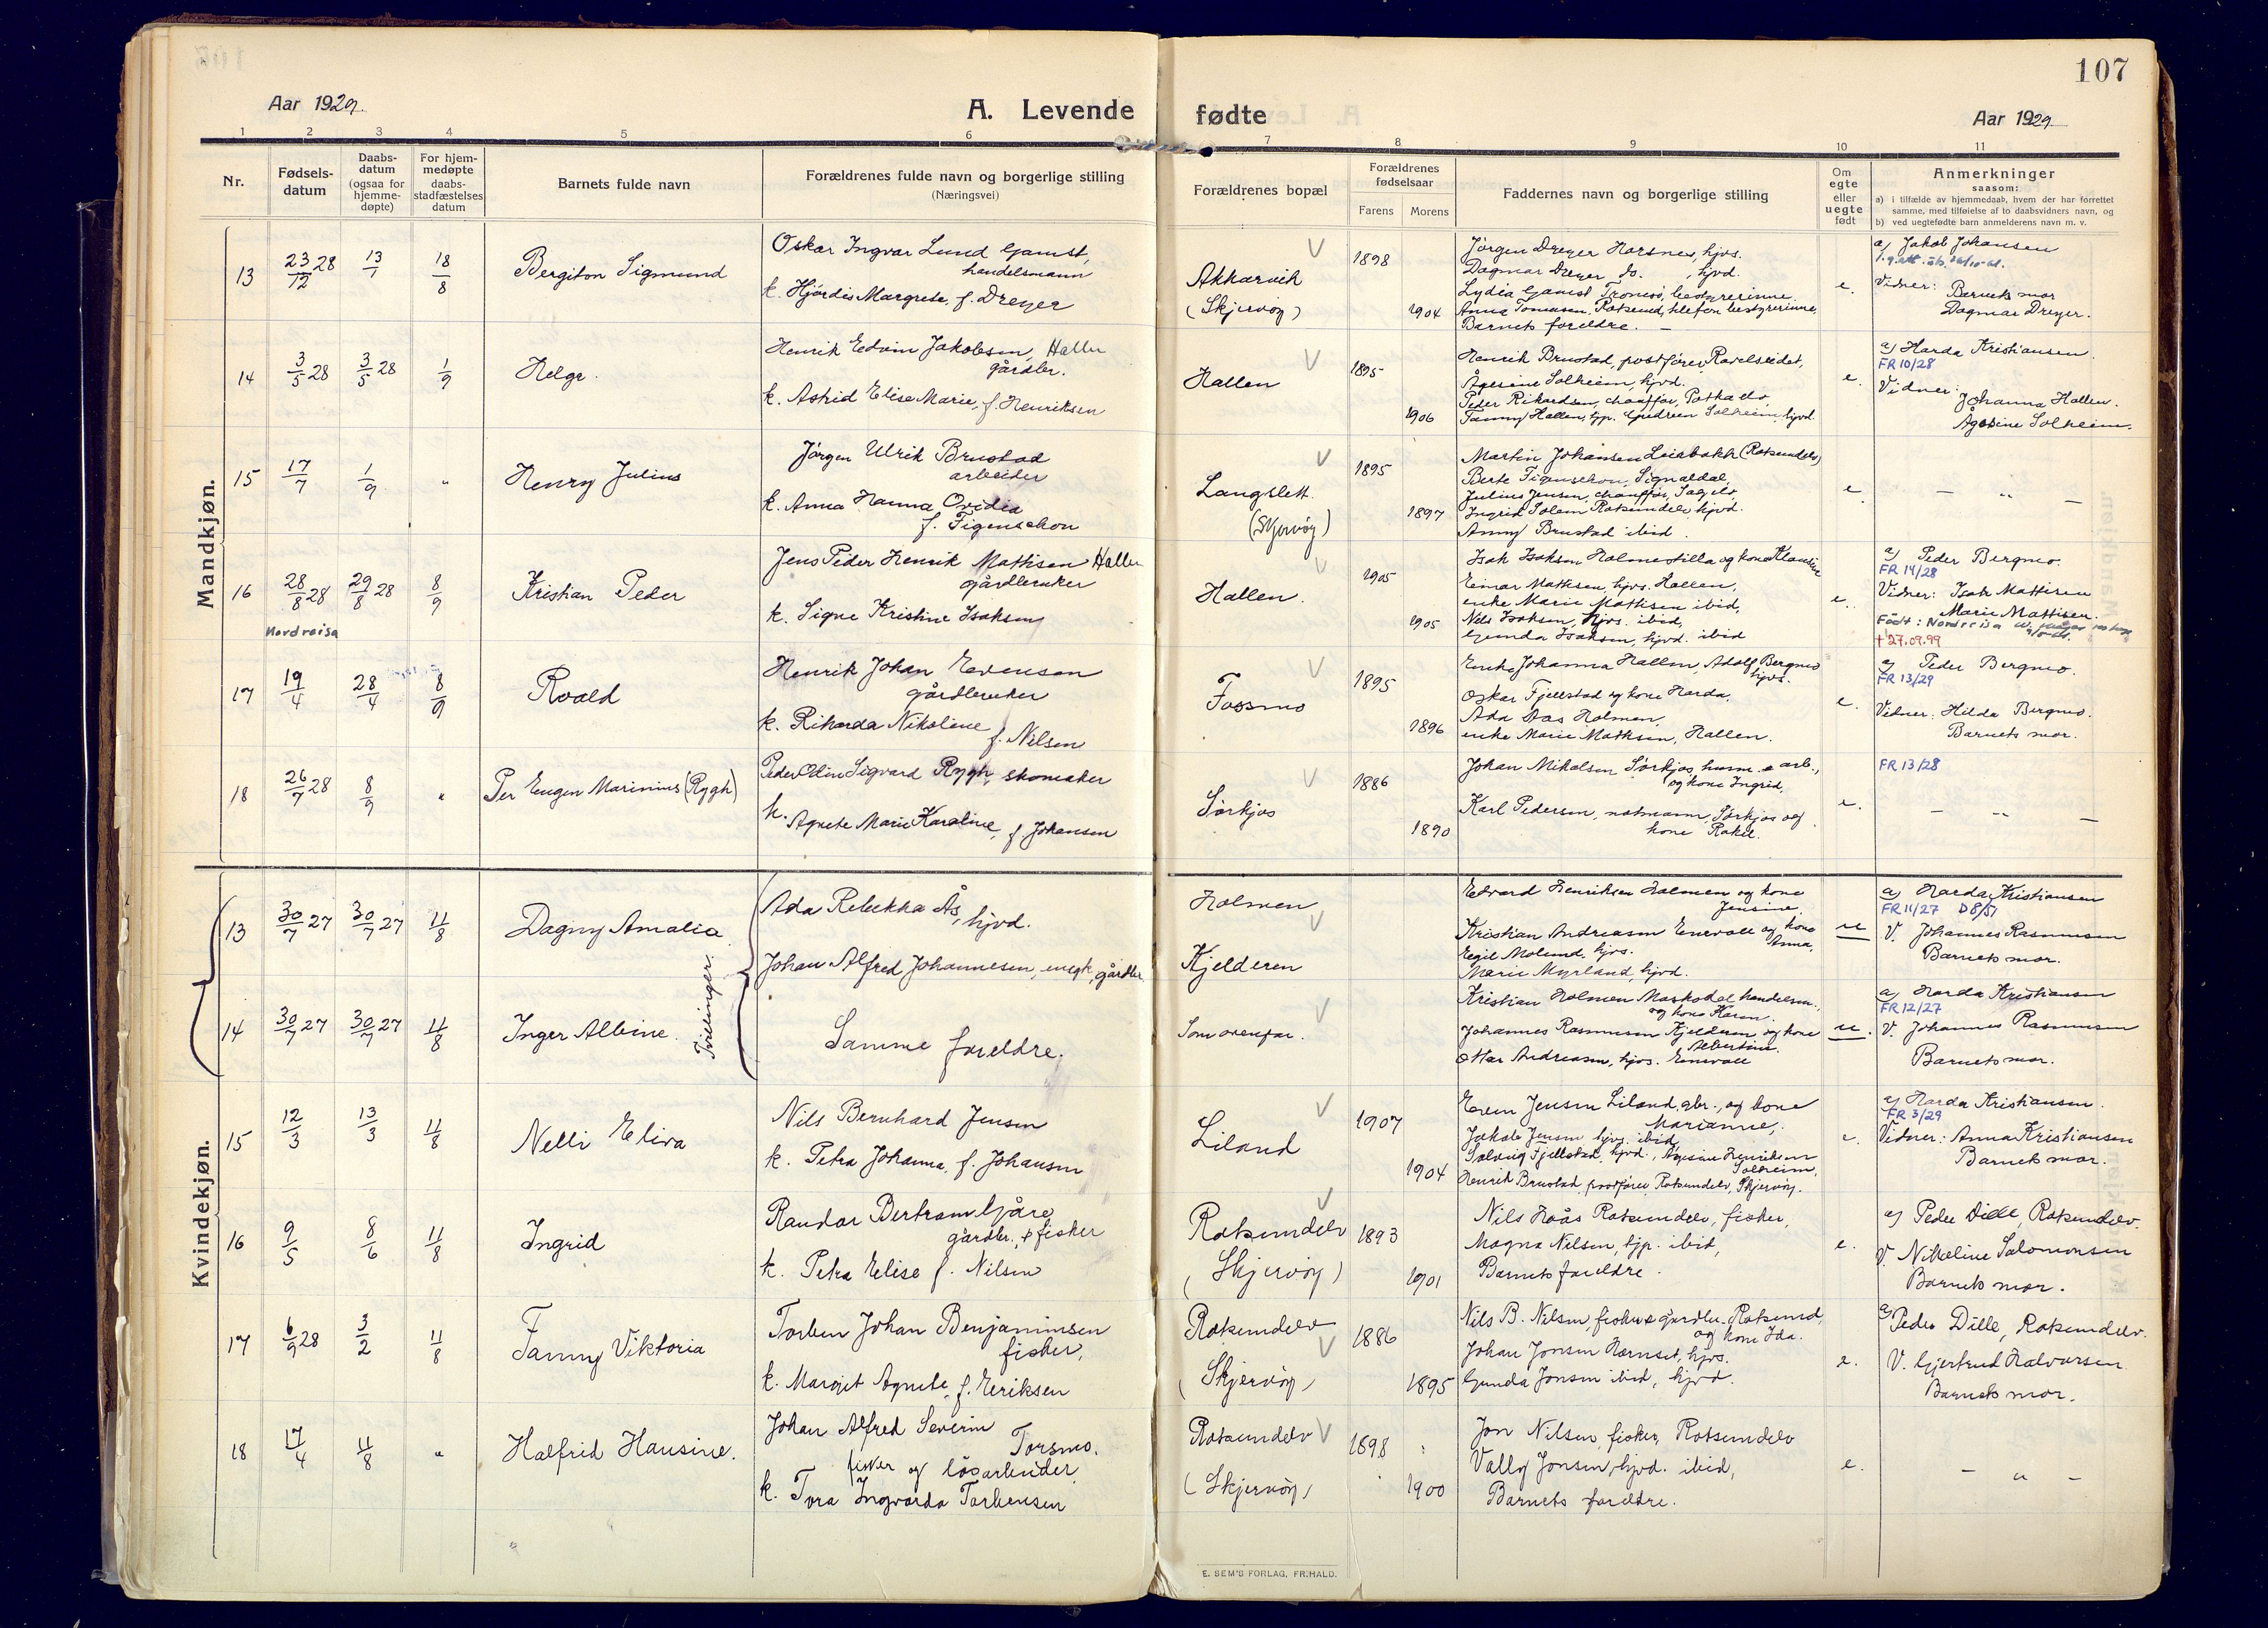 107
Aar 1929.
A. Levende
fødte
Aar 1929.
1 2 3 4 5 6 7 8 9 10 11
Nr.
Fødsels-
datum
Daabs-
datum
(ogsaa for
hjemme-
døpte)
For hjem-
medøpte
daabs-
stadfæstelses
datum
Barnets fulde navn
Forældrenes fulde navn og borgerlige stilling
(Næringsvei)
Forældrenes bopæl
Forældrenes
fødselsaar
Farens Morens
Faddernes navn og borgerlige stilling
Om
egte
eller
uegte
født
Anmerkninger
saasom:
a) i tilfælde av hjemmedaab, hvem der har forrettet
samme, med tilføielse af to daabsvidners navn, og
b) ved uegtefødte barn anmelderens navn m. v.
Mandkjøn.
13
23/12 28
13/1
18/8
Bergiton Sigmund
Oskar Ingvar Lund Gamst,
handelsmann
k. Hjördis Margrete, f. Dreyer
Akkarvik
(Skjervöy)
1898
1904
Jörgen Dreyer Havnnes, hjvs.
Dagmar Dreyer do. , hjvd.
Lydia Gamst Tromsö, bestyrerinne.
Anna Tomasen, Rotsund, telefon bestyrerinne,
Barnets foreldre. —
e.
a) Jakob Johansen
Vidner:
Barnets mor
Dagmar Dreyer.
14
3/5 28
3/5 28
1/9
Helge.
Henrik Edvin Jakobsen, Hallen
gårdbr.
k. Astrid Elise Marie, f. Henriksen
Hallen
1895
1906
Henrik Brustad, postförer, Ravelseidet,
Ågesine Solheim, hjvd.
Peder Rikardsen, chauffør,
Fanny Hallen, hjp. Gudrun Solheim, hjvd.
e.
a) Harda Kristiansen.
FR 10/28
Vidner:
Johanna Hallen.
Ågesine Solheim.
15
17/7
1/9
"
Henry Julius
Jørgen Ulrik Brustad
arbeider
k. Anna Hanna Ovidia
f. Figenschou
Langslett.
(Skjervöy)
1895
1897
Martin Johansen Leirbakk (Rotsundelv)
Berte Figenschou, Signaldal,
Julius Jensen, chauffør, Sagelv,
Ingrid Solem Rotsundelv hjvd.
Anny Brustad ibid.
e
— " —
16
28/8 28
29/8 28
8/9
Nordreisa
Kristian Peder
Jens Peder Henrik Mathisen Hallen
gårdbruker
k. Signe Kristine Isaksen
Hallen.
1905
1905
Isak Isaksen Holmestilla og kone Klausine
Einar Mathisen, hjvs. Hallen,
enke Marie Mathisen ibid,
Nils Isaksen, hjvs. ibid,
Gunda Isaksen, hjvd. ibid
e.
a) Peder Bergmo.
FR 14/28
Vidner: Isak Mattisen
Marie Mattisen.
Födt: Nordreisa
†27.09.99
17
19/4
28/4
8/9
Roald
Henrik Johan Evensen
gårdbruker
k. Rikarda Nikoline
f. Nilsen
Fossmo
1895
1896
Enke Johanna Hallen, Adolf Bergmo
hjvs.
Oskar Fjellstad og kone Harda,
Ada Aas Holmen,
enke Marie Mathisen, Hallen.
e.
a) Peder Bergmo.
FR 13/29
Vidner: Hilda Bergmo.
Barnets mor.
18
26/7 28
8/9
"
Per Eugen Marinius (Rygh)
Peder Odin Sigvard Rygh, skomaker
k. Agnete Marie Karoline, f. Johansen
Sörkjos
1886
1890
Johan Mikalsen Sörkjos, husm. & arb.,
og kone Ingrid,
Karl Pedersen, notmann, Sörkjos og
kone Rakel.
e.
FR 13/28
— " —
Kvindekjøn.
13
30/7 27
30/7 27
11/8
Dagny Amalia.
Tvillinger.
Ada Rebekka Ås, hjvd.
Johan Alfred Johannesen, gårdbr
Holmen
Kjelderen
Edvard Henriksen Holmen og kone
Jensine.
Kristian Andreasen Einevoll og kone
Anna,
Eigil Molund, hjvs.
Marie Myrland, hjvd.
u
a) Harda Kristiansen
FR 11/27 D8/51
V. Johannes Rasmussen
Barnets mor.
14
30/7 27
30/7 27
11/8
Inger Albine.
Samme foreldre.
Som ovenfor.
Kristian Holmen Maskodal handelsm.,
og kone Karen.
Johannes Rasmussen Kjelderen og kone
Albertine.
Ottar Andreasen, hjvs. Einevoll
u.
a) Harda Kristiansen
FR 12/27
V. Johannes Rasmussen
Barnets mor.
15
12/3
13/3
11/8
Nelli Elira
Nils Bernhard Jensen
k. Petra Johanna, f. Johansen
Liland
1907
1904
Even Jensen Liland, gbr., og kone
Marianne,
Jakob Jensen hjvs. ibid,
Solveig Fjellstad, hjvd., Agesine Henriksen
Solheim,
Henrik Brustad, postförer, Rotsundelv, Skjervöy.
e.
a) Harda Kristiansen.
FR 3/29
Vidner: Anna Kristiansen
Barnets mor.
16
9/5
8/6
11/8
Ingrid
Randor Bertram Gjåre
gårdbr., + fisker
k. Petra Elise f. Nilsen
Rotsundelv
(Skjervöy)
1893
1901
Nils Hoås Rotsundelv, fisker,
Magna Nilsen, hjp. ibid,
Barnets foreldre.
e.
a) Peder Dille, Rotsundelv.
V. Nikoline Salomonsen
Barnets mor.
17
6/9 28
3/2
11/8
Fanny Viktoria
Torben Johan Benjaminsen
fisker,
k. Margit Agnete, f. Eriksen
Rotsundelv
(Skjervöy)
1886
1895
Nils B. Nilsen, fisker & gårdbr. Rotsund,
og kone Ida.
Johan Jonsen Hamset, hjvs.
Gunda Jonsen ibid, hjvd.
e.
a) Peder Dille, Rotsundelv.
V. Gjertrud Halvorsen
Barnets mor.
18
17/4
11/8
"
Halfrid Hansine.
Johan Alfred Severin
Torsmo.
fisker og lösarbeider
k. Tora Ingvarda Torbensen
Rotsundelv
(Skjervöy)
1898
1900
Jon Nilsen, fisker, Rotsundelv
Vally Jonsen, hjvd. ibid,
Barnets foreldre.
e.
— " —
E. SEM'S FORLAG, FR.HALD.